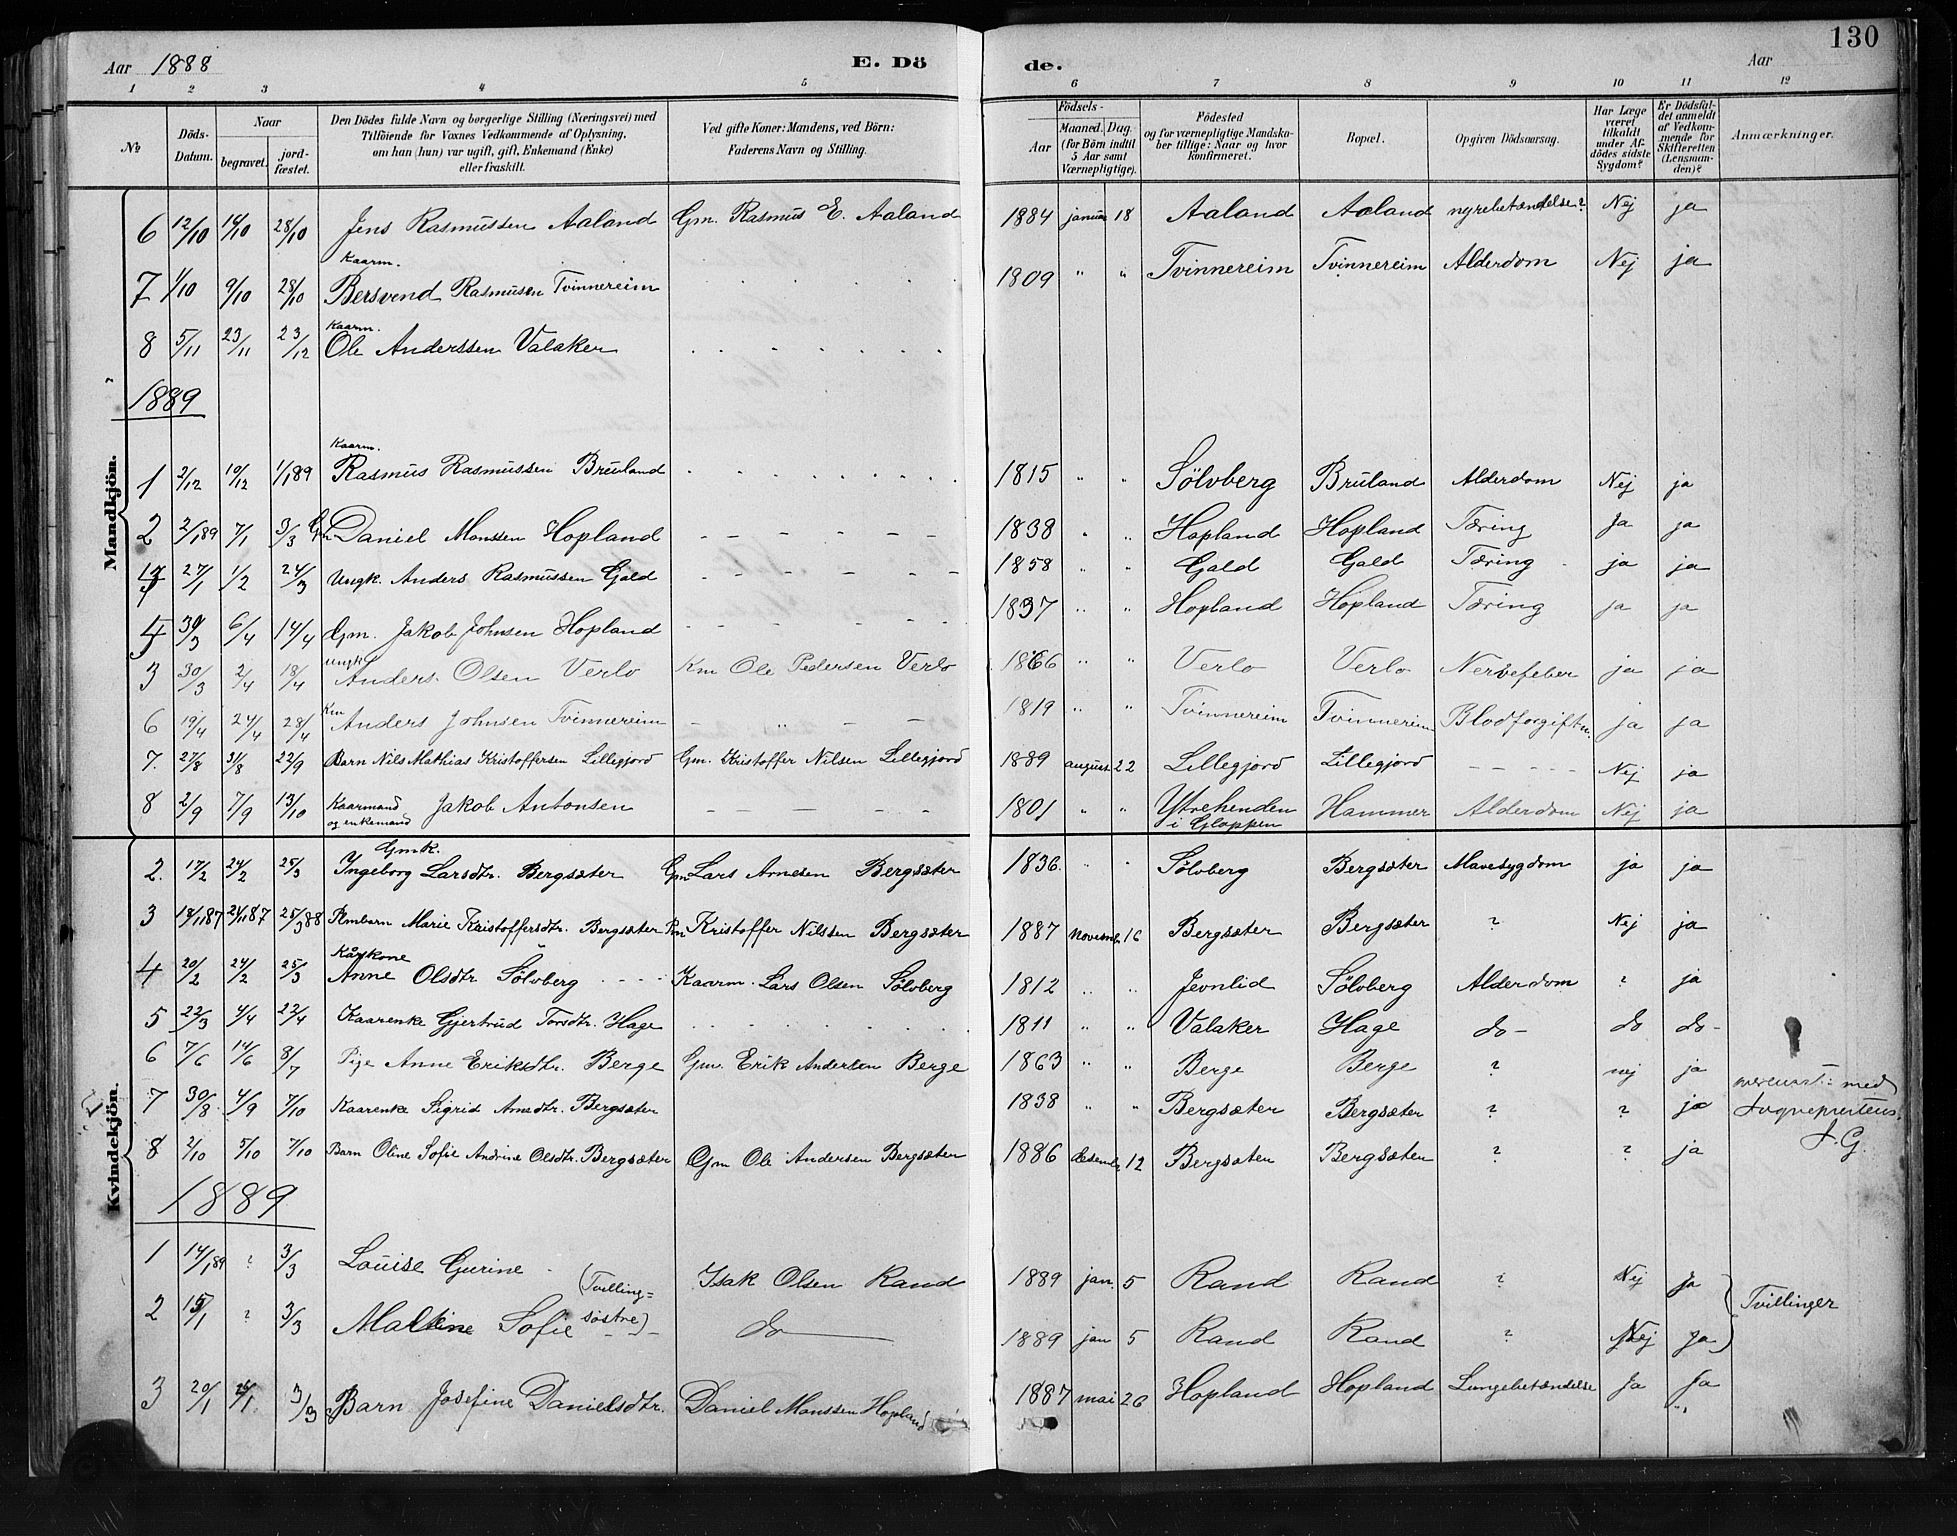 Aar 1888 E. Dö de. Aar 130
1 2 3 4 5 6 7 8 9 10 11 12
No
Döds-Datum.
Naar
begravet.
jord-fæstet.
Den Dödes fulde Navn og borgerlige Stilling (Næringsvei) med
Tilföiende for Voxnes Vedkommende af Oplysning,
om han (hun) var ugift, gift, Enkemand (Enke)
eller fraskilt.
Ved gifte Koner: Mandens, ved Börn:
Faderens Navn og Stilling.
Födsels-
Aar
Maaned. Dag.
(for Börn indtil
5 Aar samt
Værnepligtige).
Födested
og for værnepligtige Mandska-
ber tillige: Naar og hvor
konfirmeret.
Bopæl.
Opgiven Dödsaarsag.
Har Læge
været
tilkaldt
under Af-
dödes sidste
Sygdom?
Er Dödsfal-
det anmeldt
af Vedkom-
mende for
Skifteretten
(Lensman-
den)?
Anmærkninger.
Mandkjön.
6 12/10 14/10 28/10 Jens Rasmussen Aaland Gm. Rasmus E. Aaland 1884 januar 18 Aaland Aaland nyrebetændelse? Nej ja
Kaarm.
7 1/10 9/10 28/10 Bersvend Rasmusen Tvinnereim 1809 " " Tvinnereim Tvinnereim Alderdom Nej ja
Kaarm.
8 5/11 23/11 23/12 Ole Anderssen Valaker
1889
Kaarm.
1 2/12 10/12 1/1 89 Rasmus Rasmussen Bruland 1815 " " Sölvberg Bruland Alderdom Nej ja
2 2/1 89 7/1 3/3 Gm Daniel Monssen Hopland 1838 " " Hopland Hopland Tæring Ja ja
27/1 1/2 24/3 Ungk. Anders Rasmussen Gald 1858 " " Gald Gald Tæring ja ja
30/3 6/4 14/4 Gm. Jakob Johnsen Hopland 1837 " " Hopland Hopland Tæring ja ja
Ungk
3 30/3 2/4 18/4 Anders Olsen Verlo Km Ole Pedersen Verlo 1866 " " Verlo Verlo Nervefeber ja ja
6 19/4 24/4 28/4 Km Anders Johnsen Tvinnereim 1819 " " Tvinnereim Tvinnereim Blodforgiftn. ja ja
7. 27/8 31/8 22/9 Barn Nils Mathias Kristoffersen Lillegjord Gm. Kristoffer Nilsen Lillegjord 1889 august 22 Lillegjord Lillegjord Nej ja
8 2/9 7/9 13/10 Kaarmand og enkemand Jakob Antonsen 1801 " " Ytrehenden i Gloppen Hammer Alderdom Nej ja
Kvindekjön.
Gmk.
2. 17/2 24/2 25/3 Ingeborg Larsdtr. Bergsæter Gm Lars Arnesen Bergsæter 1836. " " Sölvberg Bergsæter Mavesygdom ja ja
3 18/11 87 24/11 87 25/3 88 Pmbarn Marie Kristoffersdtr. Bergsæter Pm Kristoffer Nilssen Bergsæter 1887 novemb. 16 Bergsæter Bergsæter ? Nej ja
Kårkone
4 20/2 24/2 25/3 Anne Olsdtr Sölvberg Kaarm. Lars Olsen Sölvberg 1812 " " Jevnlid Sölvberg Alderdom ? ja
5 22/3 4/4 22/4 Kaarenke Gjertrud Torsdtr. Hage 1811 " " Valaker Hage do- do do-
6 7/6 14/6 8/7 Pige Anne Eriksdtr. Berge Gm. Erik Andersen Berge 1863 " " Berge Berge ? nej ja
7 30/8 4/9 7/10 Kaarenke Sigrid Arnsdtr. Bergsæter 1838 " " Bergsæter Bergsæter ? ? ja
8 2/10 5/10 7/10 Barn Oline Sofie Andrine Olsdtr. Bergsæter Gm Ole Andersen Bergsæter 1886 desemb. 12 Bergsæter Bergsæter ? ? ja
med
J. G.
1889
1 14/1 89 ? 3/3 Louise Gurine (Tvilling= Isak Olsen Rand 1889 jan. 5 Rand Rand ? Nej Ja
2 15/1 ? 3/3 Malkine Sofie söstre) do 1889 jan 5 Rand Rand ? Nej Ja
Tvillinger
3 20/1 3/3 Barn Josefine Danielsdtr. Daniel Monssen Hopland 1887 mai 26 Hopland Hopland Lungebetændelse Ja Ja